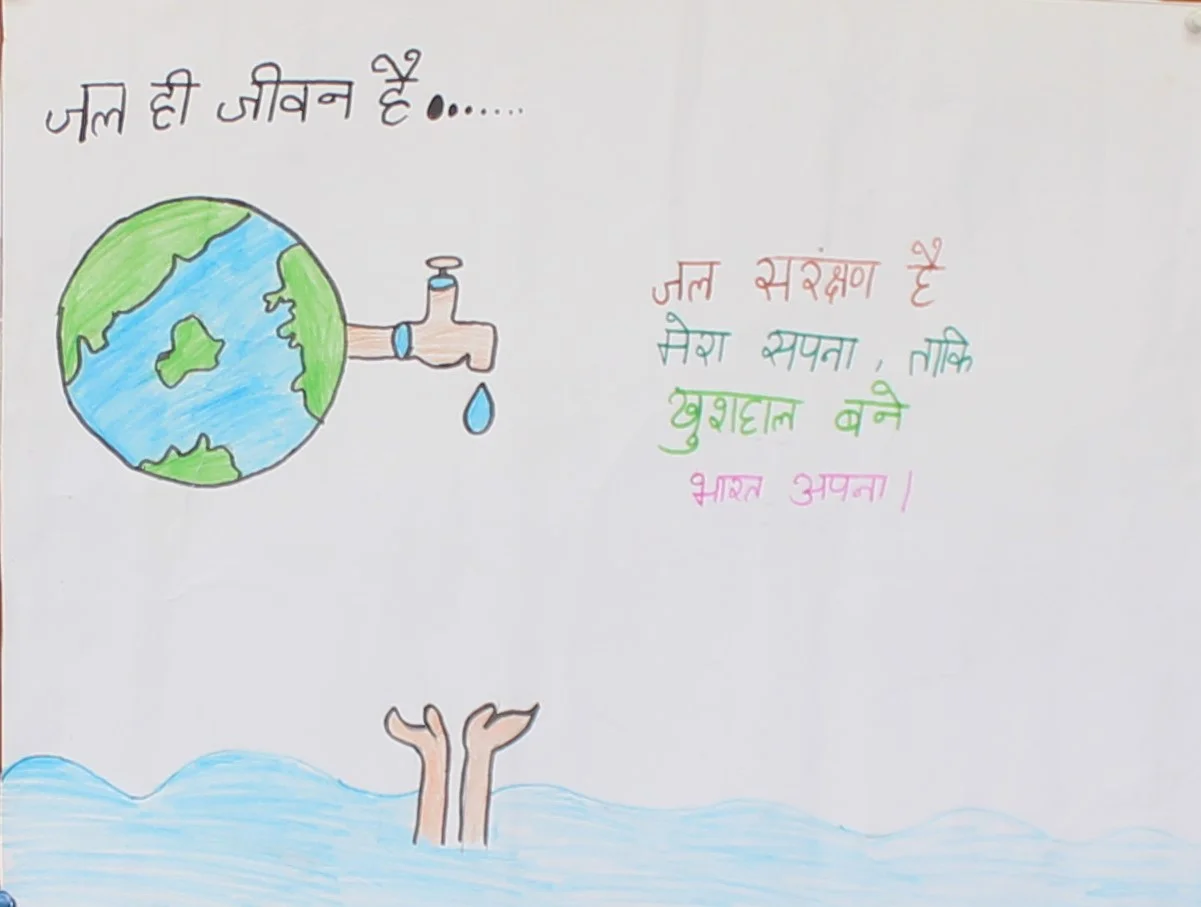 जल ही जीवन है.......
जल सरंक्षण है
मेरा सपना, ताकि
खुशहाल बने
भारत अपना।